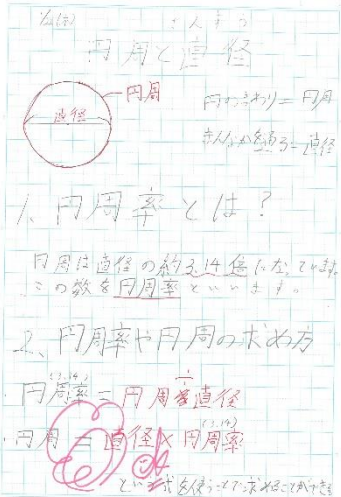 1/22(水) さんすう
円周と直径
円周
直径
円のまわり=円周
まんなかを通る=直径
1、円周率とは?
円周は直径の約3.14倍になっています。
この数を円周率といいます。
2、円周率や円周の求め方
(3.14)
円周率=円周÷直径
(3.14)
・円周=直径×円周率
という式を使うことで求めることができる